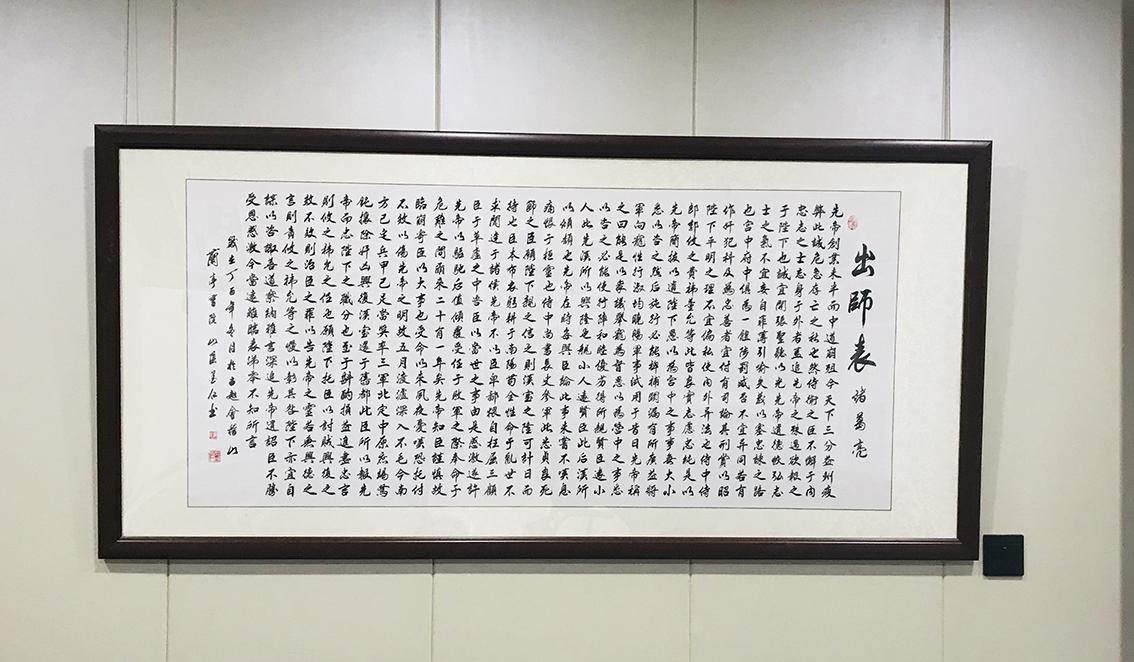 出師表 諸葛亮
先帝創業未半而中道崩殂今天下三分益州疲
弊此誠危急存亡之秋也然侍衛之臣不懈于內
忠志之士忘身于外者蓋追先帝之殊遇欲報之
于陛下也誠宜開張聖聽以光先帝遺德恢弘志
士之氣不宜妄自菲薄引喻失義以塞忠諫之路
也宮中府中俱為一體陟罰臧否不宜異同若有
作奸犯科及為忠善者宜付有司論其刑賞以昭
陛下平明之理不宜偏私使內外異法也侍中侍
郎郭攸之費禕董允等此皆良實志慮忠純是以
先帝簡拔以遺陛下愚以為宮中之事事無大小
悉以咨之然后施行必能裨補闕漏有所廣益將
軍向寵性行淑均曉暢軍事試用于昔日先帝稱
之曰能是以眾議舉寵為督愚以為營中之事悉
以咨之必能使行陣和睦優劣得所親賢臣遠小
人此先漢所以興隆也親小人遠賢臣此后漢所
以傾頹也先帝在時每與臣論此事未嘗不嘆息
痛恨于桓靈也侍中尚書長史參軍此悉貞良死
節之臣願陛下親之信之則漢室之隆可計日而
待也臣本布衣躬耕于南陽苟全性命于亂世不
求聞達于諸侯先帝不以臣卑鄙猥自枉屈三顧
臣于草廬之中咨臣以當世之事由是感激遂許
先帝以驅馳后值傾覆受任于敗軍之際奉命于
危難之間爾來二十有一年矣先帝知臣謹慎故
臨崩寄臣以大事也受命以來夙夜憂嘆恐托付
不效以傷先帝之明故五月渡瀘深入不毛今南
方已定兵甲已足當獎率三軍北定中原庶竭駑
鈍攘除奸凶興復漢室還于舊都此臣所以報先
帝而忠陛下之職分也至于斟酌損益進盡忠言
則攸之禕允之任也願陛下托臣以討賊興復之
效不效則治臣之罪以告先帝之靈若無興德之
言則責攸之禕允等之慢以彰其咎陛下亦宜自
謀以咨諏善道察納雅言深追先帝遺詔臣不勝
受恩感激今當遠離臨表涕零不知所言
歲在丁酉年冬月於古越會稽山
蘭亭書院 山陰 書